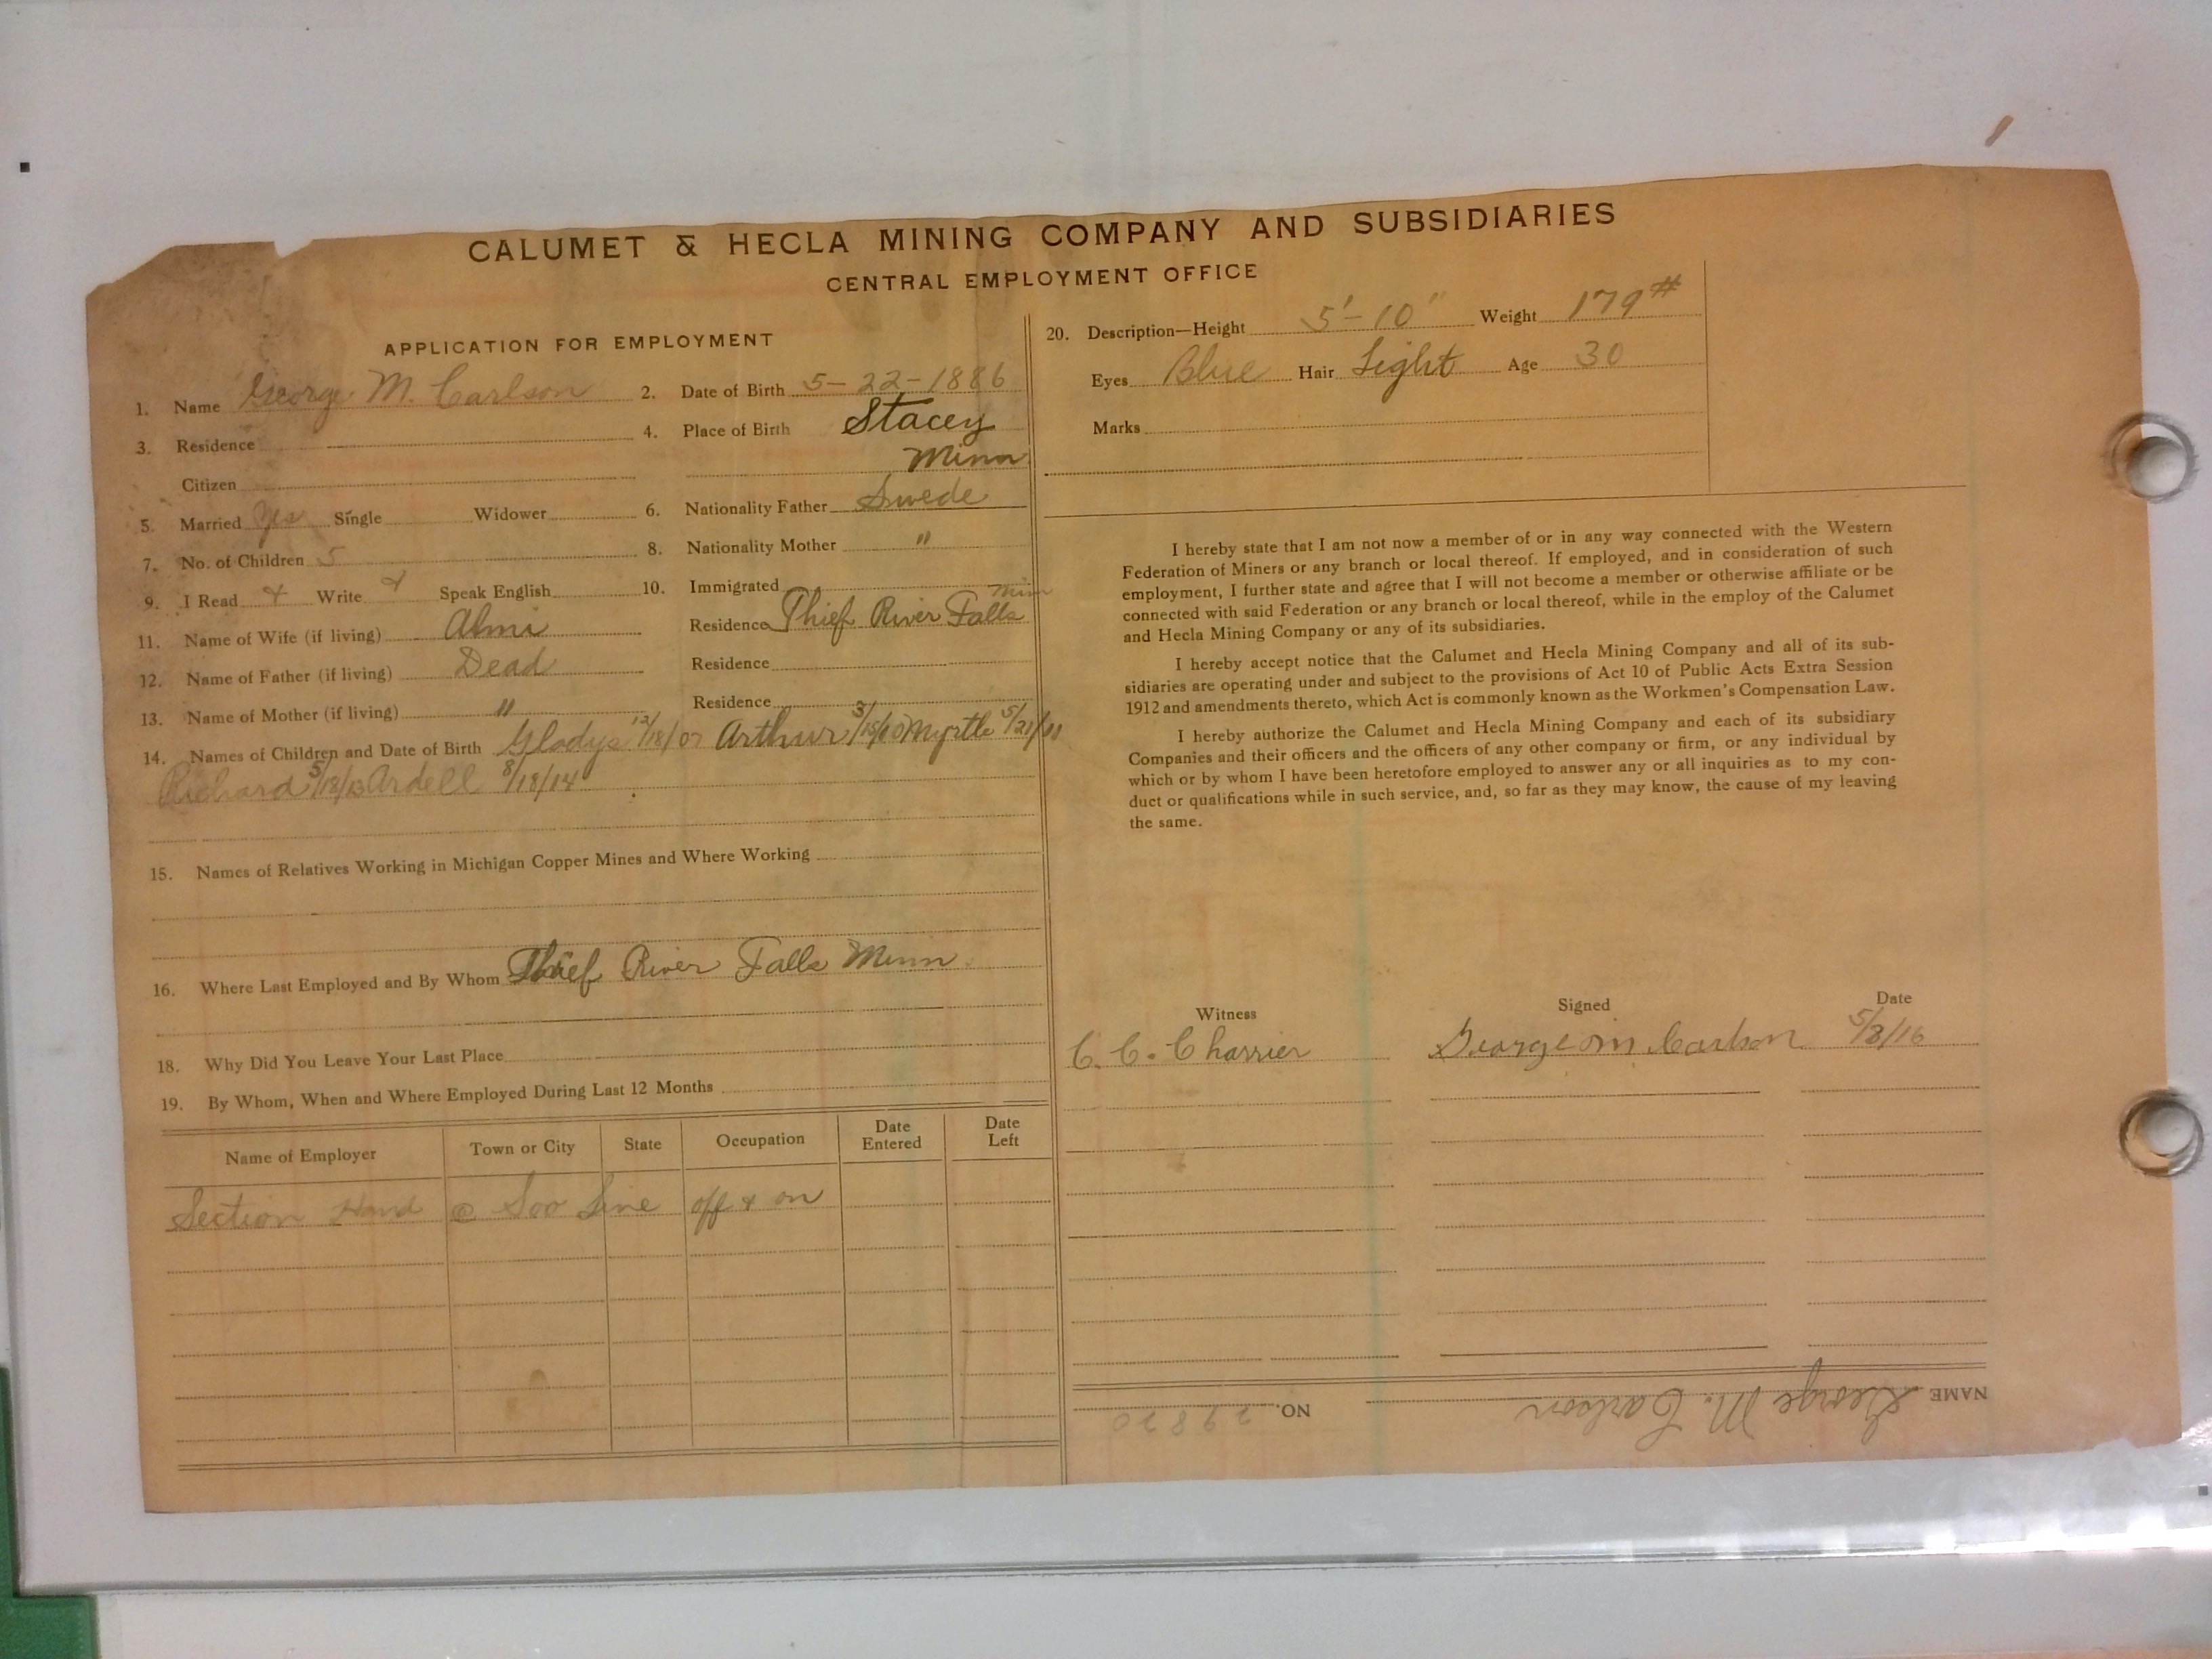 CALUMET & HECLA MINING COMPANY AND SUBSIDIARIES
CENTRAL EMPLOYMENT OFFICE
APPLICATION FOR EMPLOYMENT
1. Name George M. Carlson 2. Date of Birth 5-22-1886
3. Residence 4. Place of Birth Stacey
Citizen Minn
5. Married Yes Single Widower 6. Nationality Father Swede
7. No. of Children 5 8. Nationality Mother "
9. I Read + Write + Speak English 10. Immigrated
Minn
11. Name of Wife (if living) Almi Residence Thief River Falls
12. Name of Father (if living) Dead Residence
13. Name of Mother (if living) " Residence
14. Names of Children and Date of Birth Gladys 12/18/07 Arthur 3/15/10 Myrtle 5/21/11
Richard 5/18/13 Ardell 8/18/14
15. Names of Relatives Working in Michigan Copper Mines and Where Working
16. Where Last Employed and By Whom Thief River Falls Minn
18. Why Did You Leave Your Last Place
19. By Whom, When and Where Employed During Last 12 Months
Name of Employer Town or City State Occupation Date Entered Date Left
Section Hand @ Soo Line off + on
20. Description—Height 5'-10" Weight 179#
Eyes Blue Hair Light Age 30
Marks
I hereby state that I am not now a member of or in any way connected with the Western
Federation of Miners or any branch or local thereof. If employed, and in consideration of such
employment, I further state and agree that I will not become a member or otherwise affiliate or be
connected with said Federation or any branch or local thereof, while in the employ of the Calumet
and Hecla Mining Company or any of its subsidiaries.
I hereby accept notice that the Calumet and Hecla Mining Company and all of its sub-
sidiaries are operating under and subject to the provisions of Act 10 of Public Acts Extra Session
1912 and amendments thereto, which Act is commonly known as the Workmen's Compensation Law.
I hereby authorize the Calumet and Hecla Mining Company and each of its subsidiary
Companies and their officers and the officers of any other company or firm, or any individual by
which or by whom I have been heretofore employed to answer any or all inquiries as to my con-
duct or qualifications while in such service, and, so far as they may know, the cause of my leaving
the same.
Witness Signed Date
C. C. Charrier George M Carlson 5/8/16
NAME George M. Carlson NO. 29820